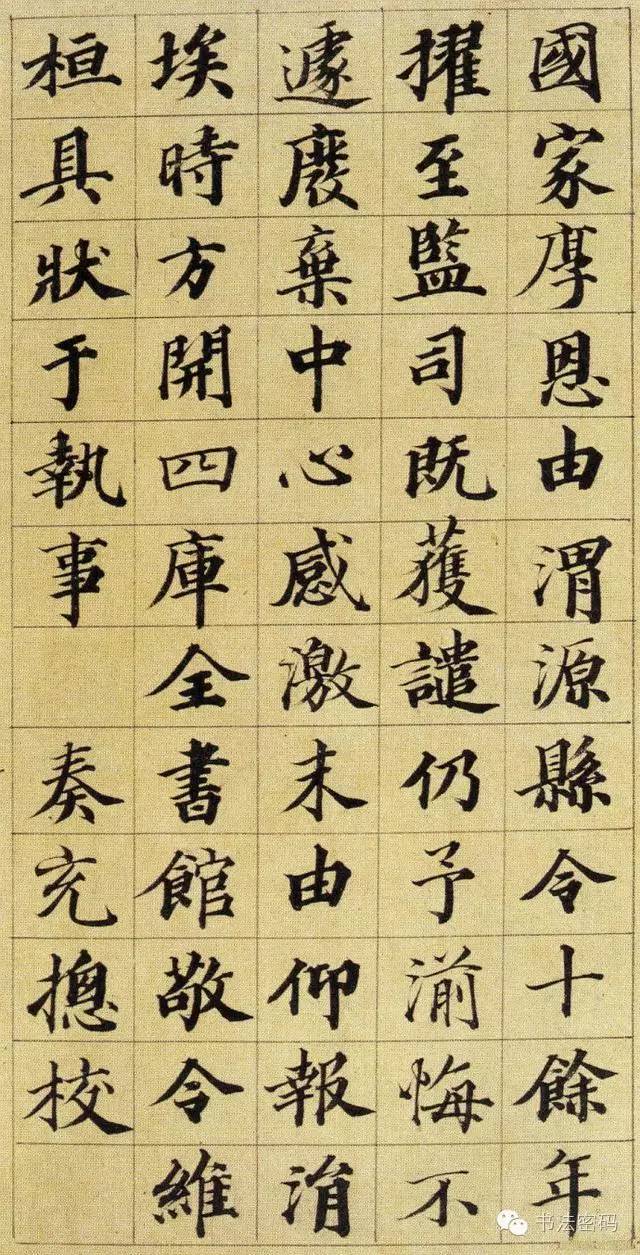 國家厚恩由渭源縣令十餘年
擢至監司既獲譴仍予湔悔不
遽廢棄中心感激末由仰報涓
埃時方開四庫全書館敬令維
桓具狀于執事 奏充摠校
书法密码